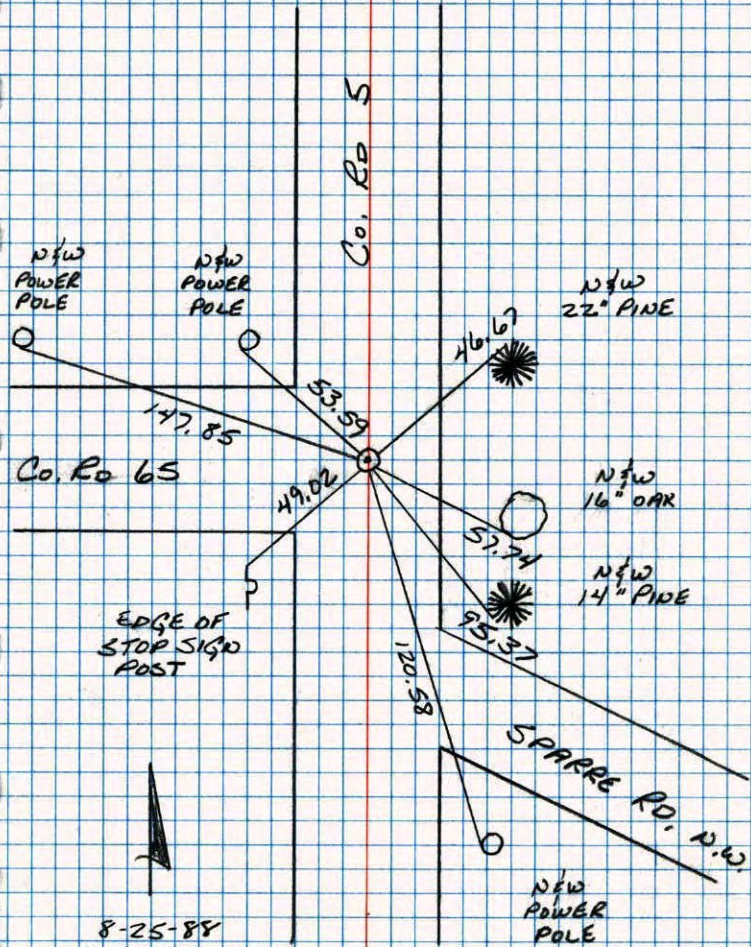 Co. RD 5
N&W
POWER
POLE
N&W
POWER
POLE
N&W
22" PINE
46.67
53.59
147.85
Co. RD 65
49.02
N&W
16" OAK
57.74
N&W
14" PINE
95.37
EDGE OF
STOP SIGN
POST
120.58
SPARRE RD. N.W.
N&W
POWER
POLE
8-25-88